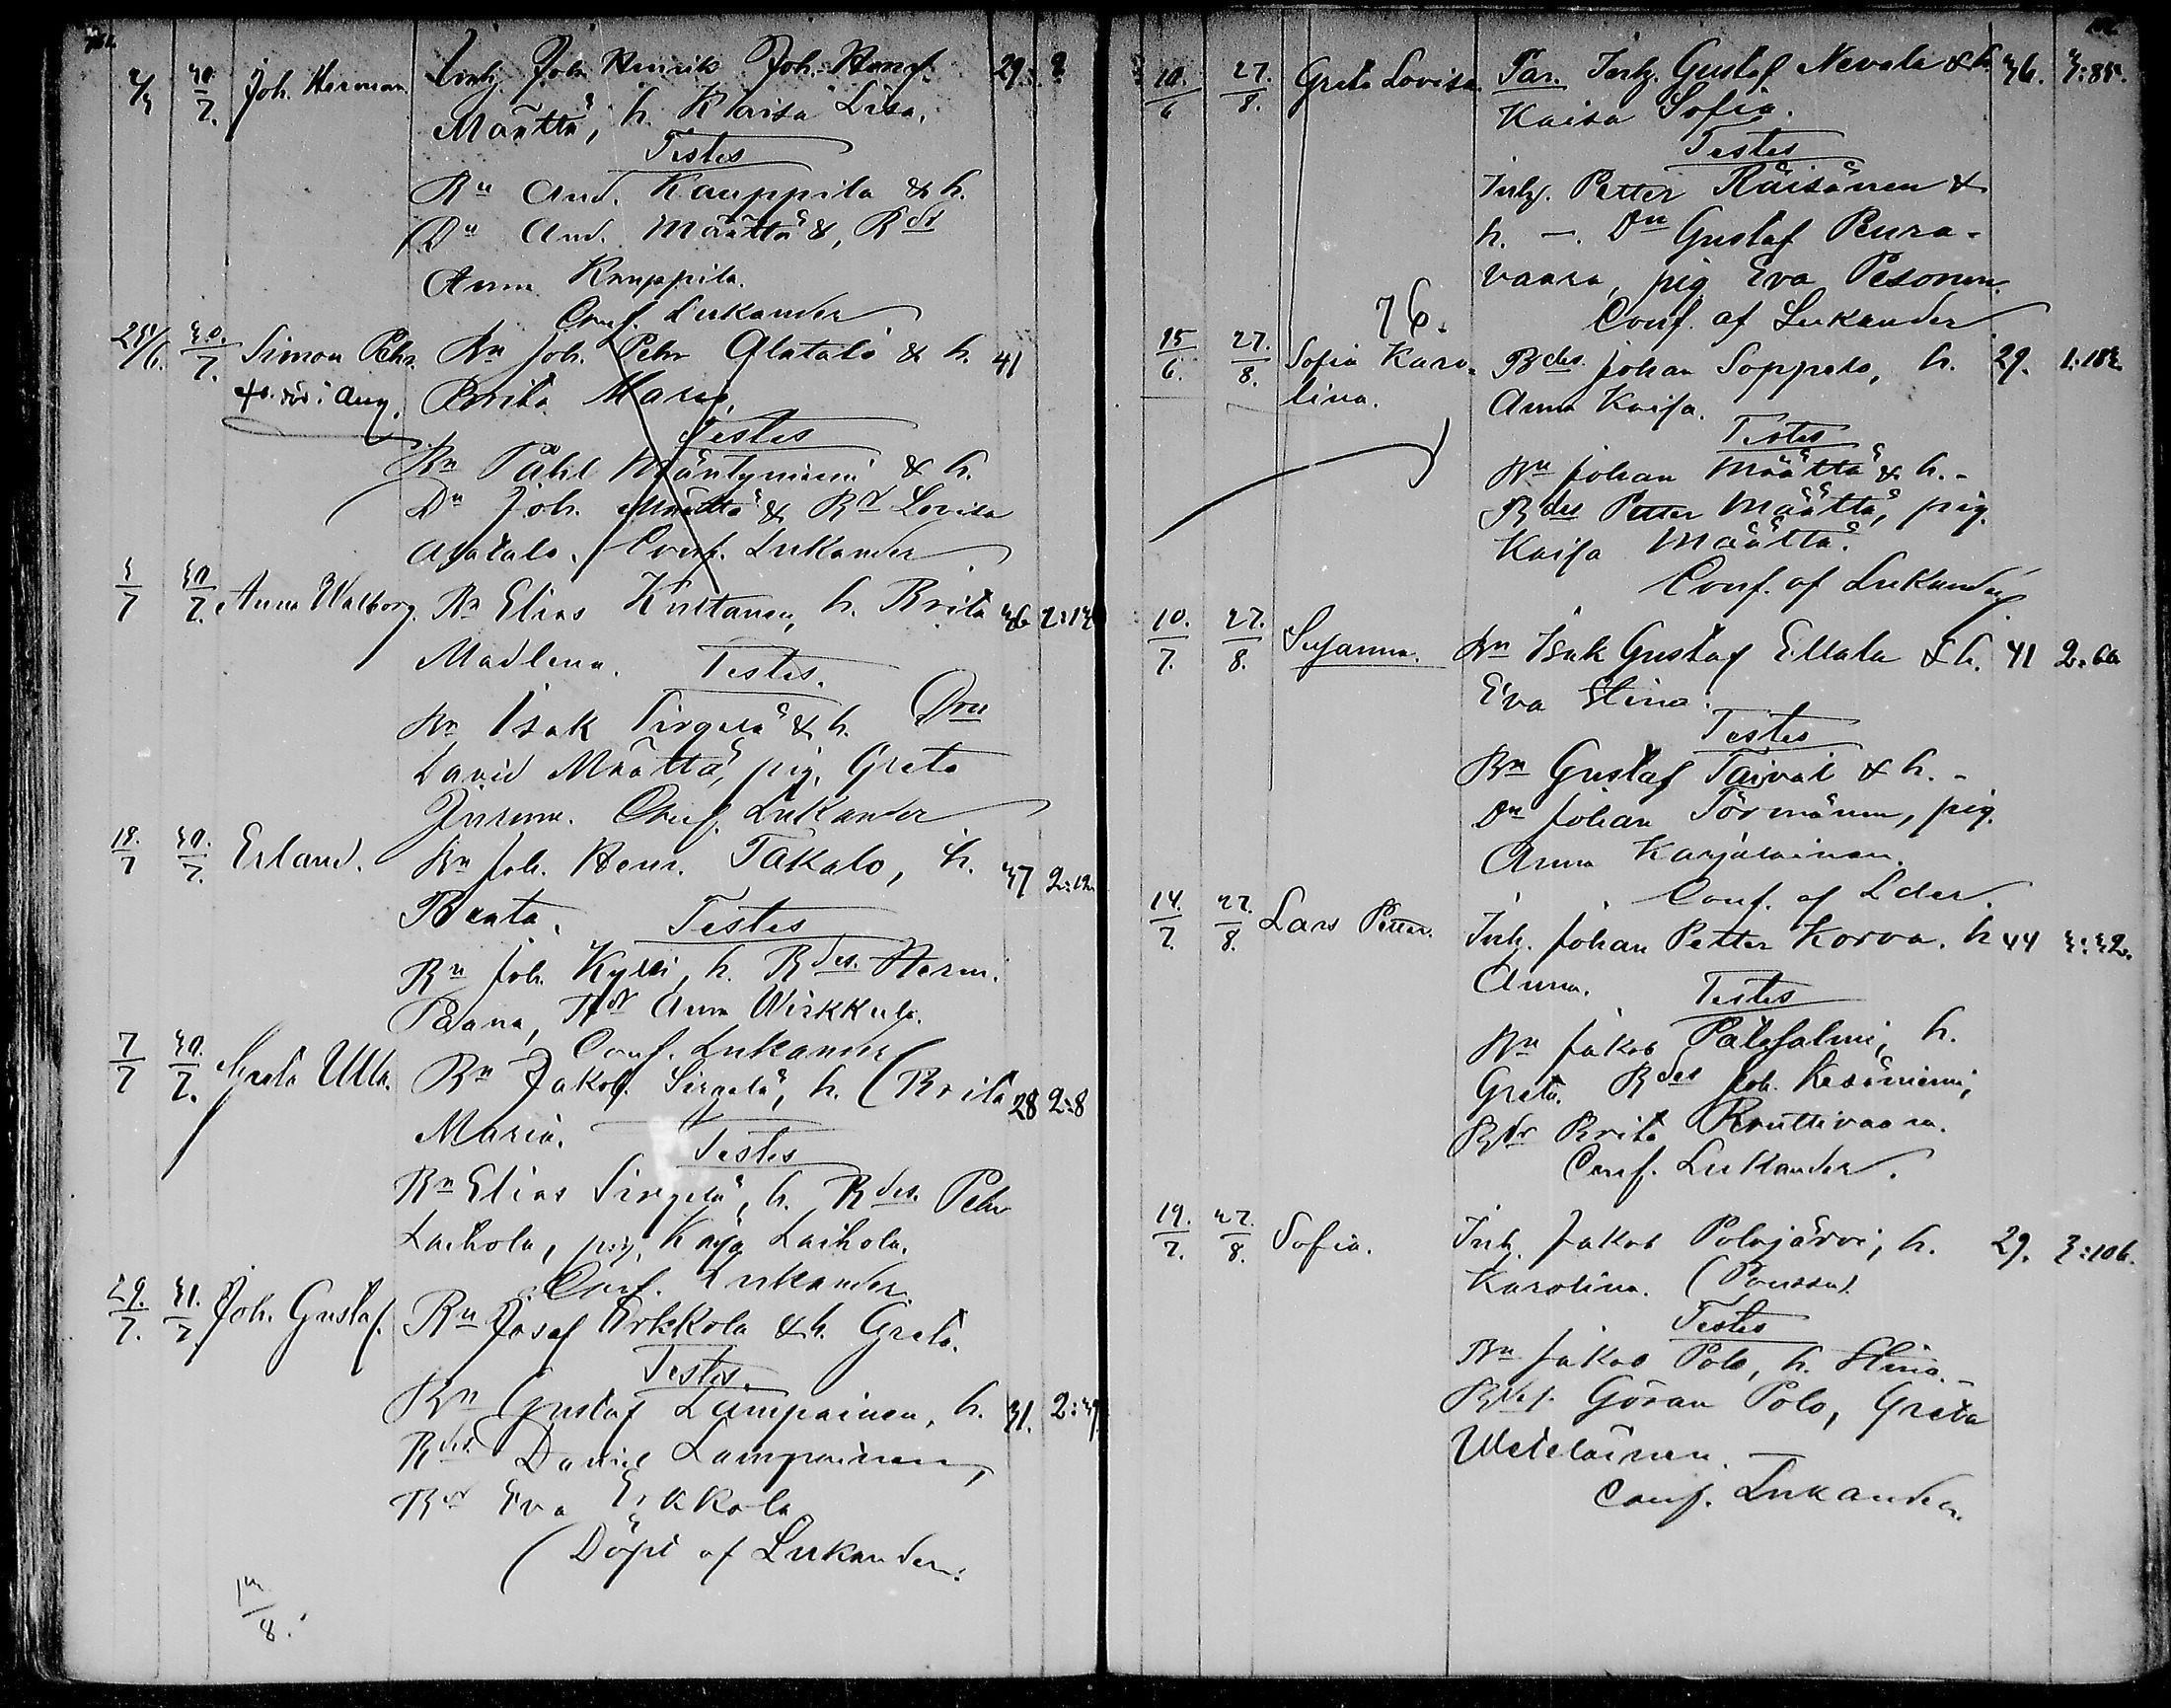 2/3 30/7. Joh. Herman. Inh. Joh. Henrik Joh. Henr. 29. ?
Määttä, h. Kaisa Lisa.
Testes
Bn And. Kauppila & h.
Dn And. Määttä &, Bdr
Anna Kauppila.
Conf. Lukander
25/6. 30./7. Simon Pehr. Bn Joh. Pehr Alatalo & h. 41
Brita Maria.
Testes
Bn Påhl Mäntyniemi & h.
Dn Joh. Määttä & Bdr Lovisa
Alatalo. Conf. Lukander
3/7 30/7. Anna Walborg. Bn Elias Kultanen, h. Brita 36 2:13
Madlena. Testes.
Bn Isak Sirgelä & h. Drn
David Määttä, pig. Greta
Conf. Lukander
18./7 30./7. Erland. Bn Joh. Henr. Takalo, h. 37 2:12.
Beata. Testes
Bn Joh. Kyrö, h. Bdes. Herm.
Paana, Bdr Anna Wirkkula.
Conf. Lukander
7/7 30./7. Greta Ulla. Bn Jakob Sirgelä, h. Brita 28 2:8
Maria. Testes
Bn Elias Sirgelä, h. Bdes. Pehr
Laihola, pig. Kajsa Laihola.
Conf. Lukander
29./7. 31./7 Joh. Gustaf. Bn Josef Erkkola & h. Greta.
Testes.
Bn Gustaf Lampainen, h. 31. 2:39.
Bdes. Daniel Lampainen,
Bdr Eva Erkkola
Döpt af Lukander.
/8.
10./6 27./8. Greta Lovisa. Par. Inhy. Gustaf Nevala & h. 36. 3:85.
Kaisa Sofia.
Testes
Inhy. Petter Räisänen &
h. —. Dn Gustaf Peura-
vaara, pig Eva Pesonen.
Conf. af Lukander
76.
15/6. 27./8. Sofia Karo- Bdes. Johan Soppela, h. 29. 1:183.
lina. Anna Kaisa.
Testes
Bn Johan Määttä & h. -
Bdes Petter Määttä, pig.
Kaisa Määttä.
Conf. af Lukander
10./7. 27./8. Susanna. Bn Isak Gustaf Ellala & h. 41 2:60
Eva Stina.
Testes
Bn Gustaf Taival & h. -
Dn Johan Törmänen, pig.
Anna Karjalainen.
Conf. af Lder.
14./7. 27./8. Lars Petter. Inh. Johan Petter Korva. h 44 3:32.
Anna. Testes
Bn Jakob Palosalmi, h.
Greta. Bdes Joh. Kesäniemi,
Bdr Brita Ruuttivaara.
Conf. Lukander.
19./7. 27./8. Sofia. Inh. Jakob Polojärvi, h. 29. 3:106.
Karolina. (Poussu).
Testes
Bn Jakob Polo, h. Stina. -
Bdes. Göran Polo, Greta
Uleteläinen.
Conf. Lukander.